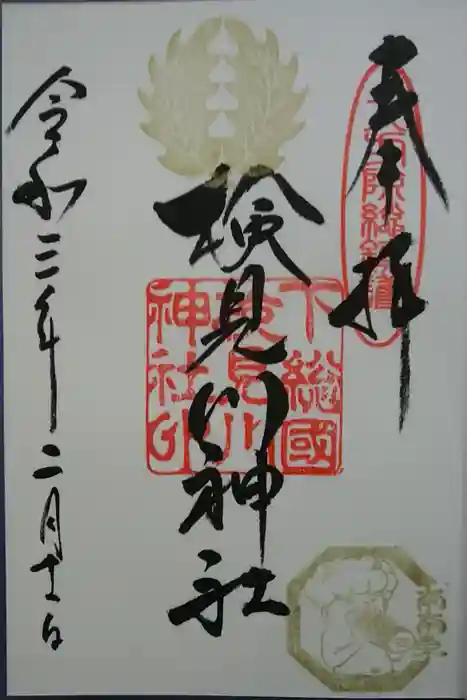 奉拝
下総國
検見川
神社印
検見川神社
令和三年二月十一日